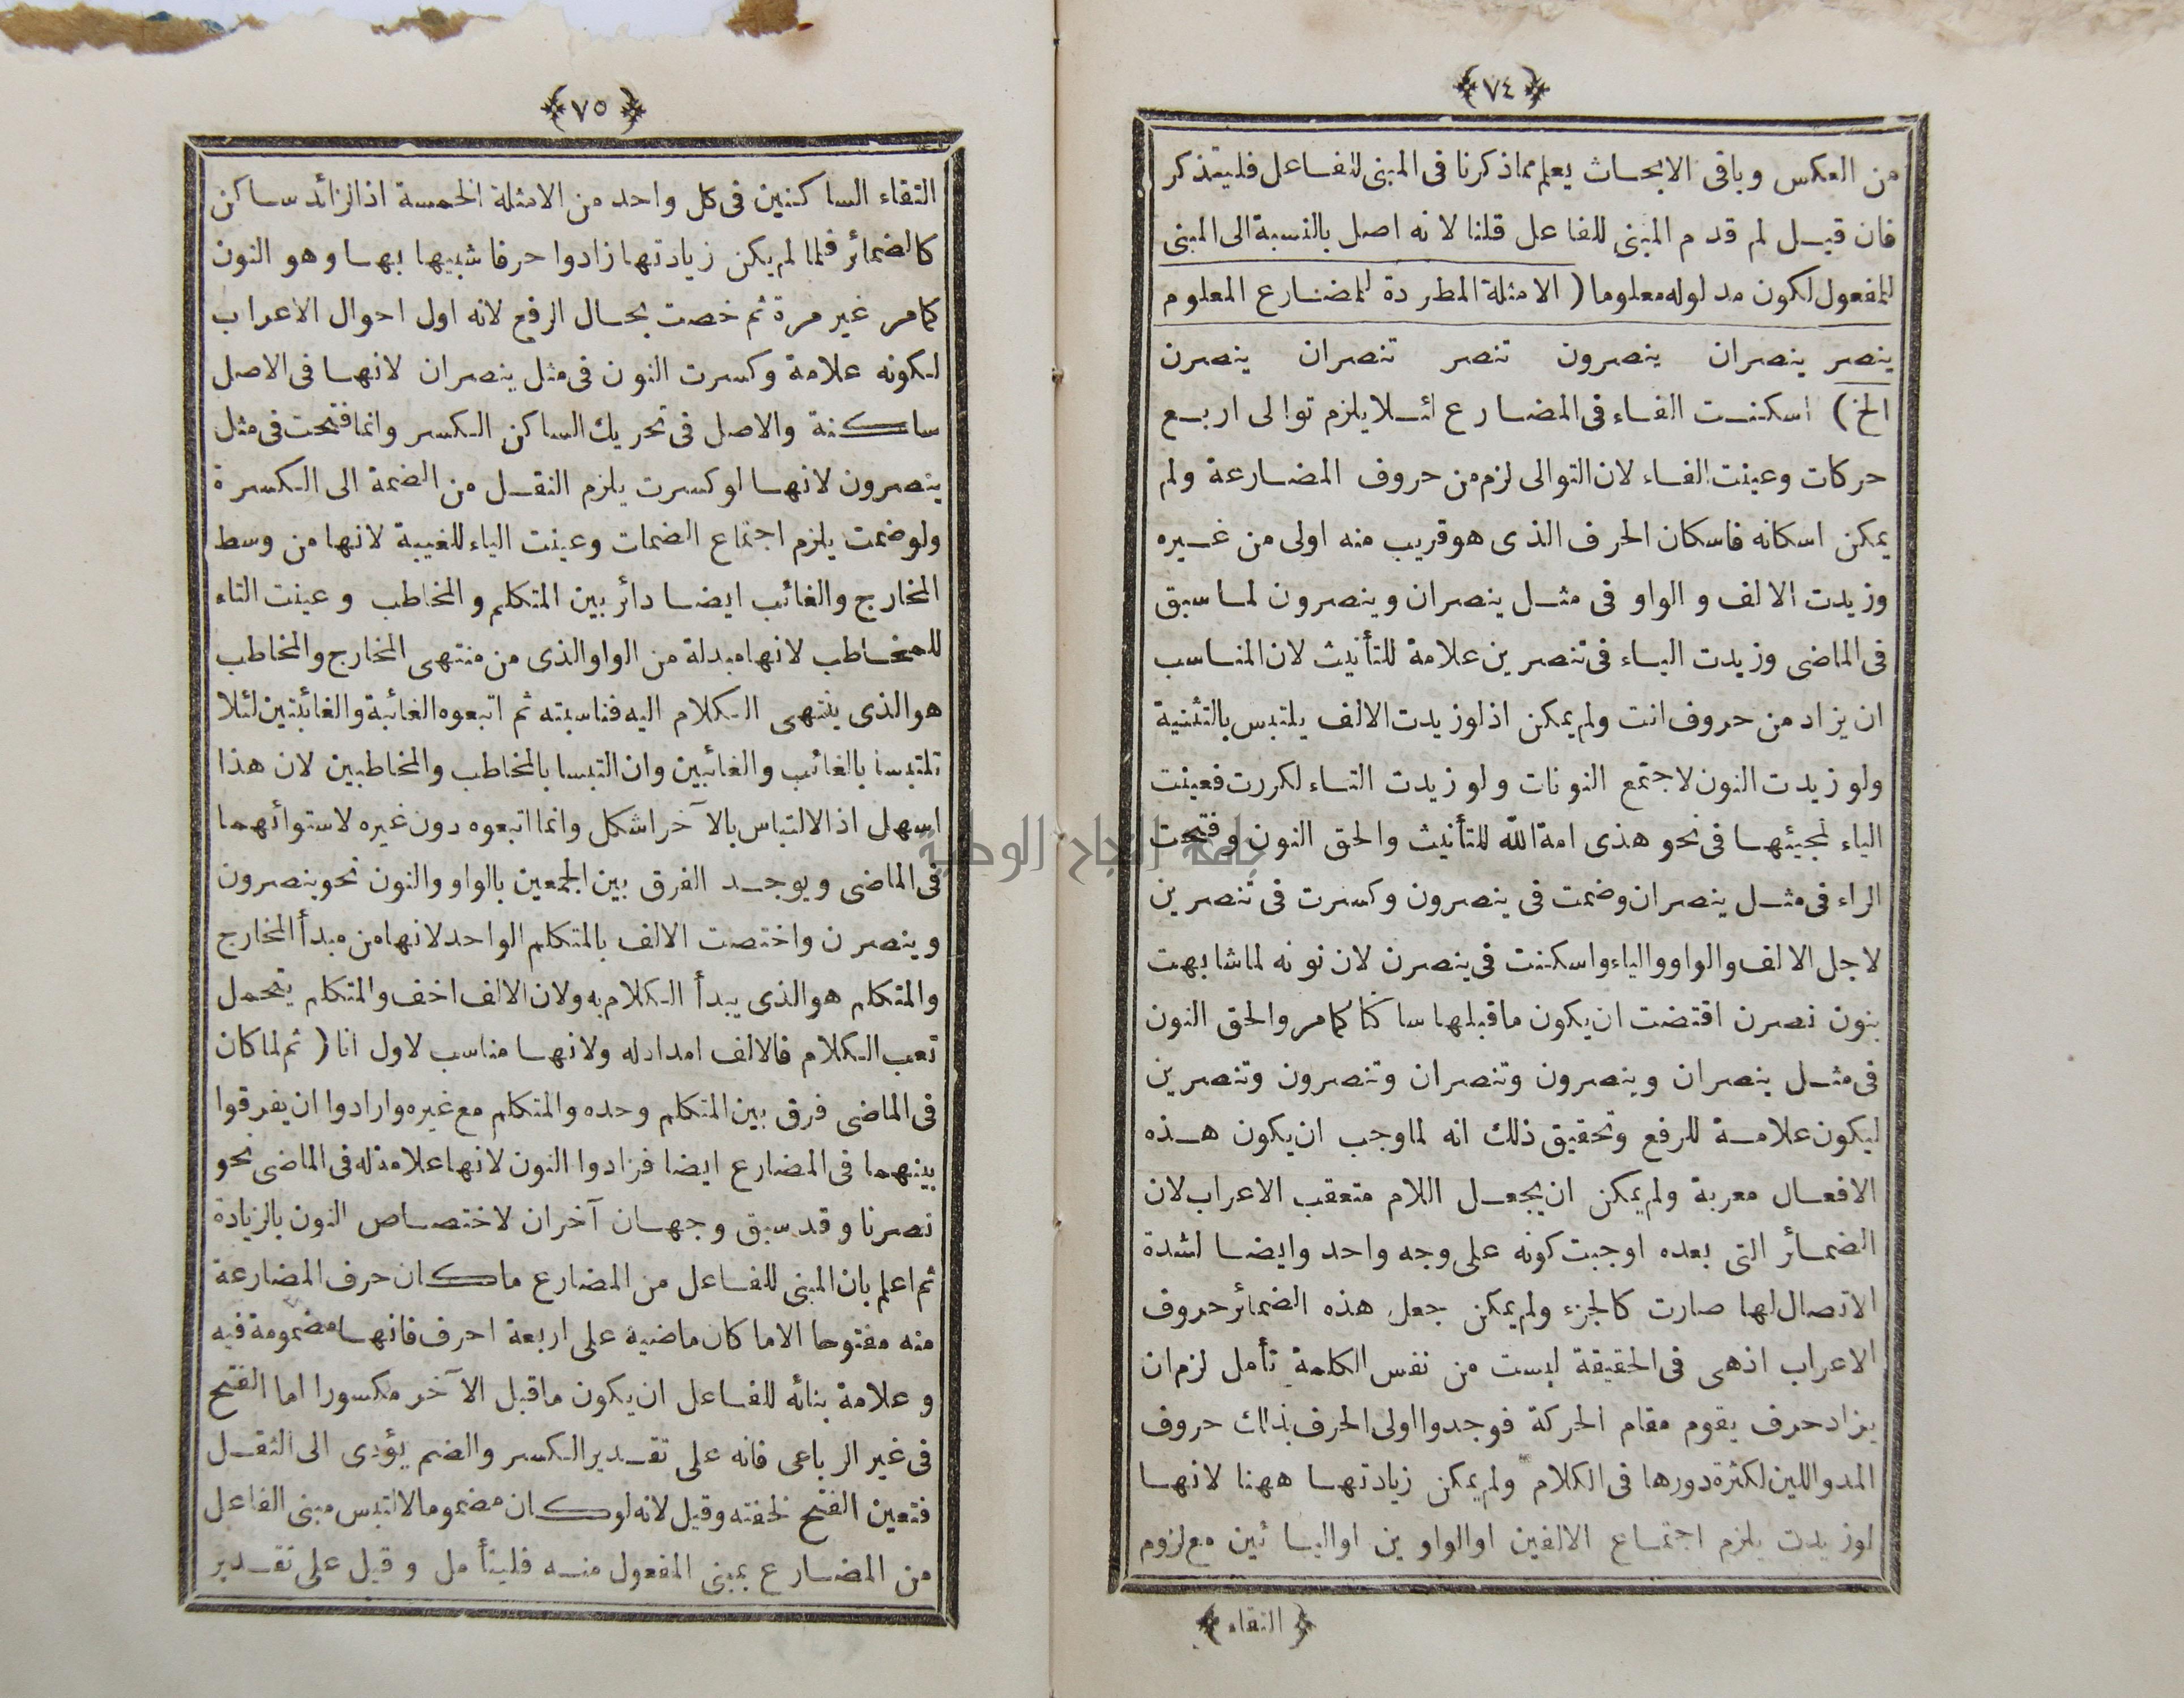 ﴿٧٤﴾
من العكس وباقى الابحاث يعلم مماذكرنا فى المبنى للفاعل فليتذكر
فان قيل لم قدم المبنى للفاعل قلنا لانه اصل بالنسبة الى المبنى
للمفعول لكون مدلوله معلوما ( الامثلة المطردة للمضارع المعلوم
ينصر ينصران ينصرون تنصر تنصران ينصرن
الخ ) اسكنت الفاء فى المضارع لئلا يلزم توالى اربع
حركات وعينت الفاء لان التوالى لزم من حروف المضارعة ولم
يمكن اسكانه فاسكان الحرف الذى هو قريب منه اولى من غيره
وزيدت الالف والواو فى مثل ينصران وينصرون لما سبق
فى الماضى وزيدت الياء فى تنصرين علامة للتأنيث لان المناسب
ان يزاد من حروف انت ولم يمكن اذ لو زيدت الالف يلتبس بالتثنية
ولو زيدت النون لاجتمع النونات ولو زيدت التاء لكررت فعينت
الياء لمجيئها فى نحو هذى امة الله للتأنيث والحق النون وفتحت
الراء فى مثل ينصران وضمت فى ينصرون وكسرت فى تنصرين
لاجل الالف والواو والياء واسكنت فى ينصرن لان نونه لما شابهت
بنون نصرن اقتضت ان يكون ماقبلها ساكنا كمامر والحق النون
فى مثل ينصران وينصرون وتنصران وتنصرون وتنصرين
ليكون علامة للرفع وتحقيق ذلك انه لما وجب ان يكون هذه
الافعال معربة ولم يمكن ان يجعل اللام متعقب الاعراب لان
الضمائر التى بعده اوجبت كونه على وجه واحد وايضا لشدة
الاتصال لها صارت كالجزء ولم يمكن جعل هذه الضمائر حروف
الاعراب اذهى فى الحقيقة ليست من نفس الكلمة تأمل لزم ان
يزاد حرف يقوم مقام الحركة فوجدوا اولى الحرف بذلك حروف
المد واللين لكثرة دورها فى الكلام ولم يمكن زيادتها ههنا لانها
لو زيدت يلزم اجتماع الالفين او الواوين او اليائين مع لزوم
﴿التقاء﴾
﴿٧٥﴾
التقاء الساكنين فى كل واحد من الامثلة الخمسة اذ الزائد ساكن
كالضمائر فلما لم يكن زيادتها زادوا حرفا شبيها بها وهو النون
كمامر غير مرة ثم خصت بحال الرفع لانه اول احوال الاعراب
لكونه علامة وكسرت النون فى مثل ينصران لانها فى الاصل
ساكنة والاصل فى تحريك الساكن الكسر وانما فتحت فى مثل
ينصرون لانها لو كسرت يلزم النقل من الضمة الى الكسرة
ولو ضمت يلزم اجتماع الضمات وعينت الياء للغيبة لانها من وسط
المخارج والغائب ايضا دائر بين المتكلم والمخاطب وعينت التاء
للمخاطب لانها مبدلة من الواو الذى من منتهى المخارج والمخاطب
هو الذى ينتهى الكلام اليه فناسبته ثم اتبعوه الغائبة والغائبتين لئلا
تلتبسا بالغائب والغائبين وان التبسا بالمخاطب والمخاطبين لان هذا
اسهل اذ الالتباس بالآخر اشكل وانما اتبعوه دون غيره لاستوائهما
فى الماضى ويوجد الفرق بين الجمعين بالواو والنون نحو ينصرون
وينصرن واختصت الالف بالمتكلم الواحد لانها من مبدأ المخارج
والمتكلم هو الذى يبدأ الكلام به ولان الالف اخف والمتكلم يتحمل
تعب الكلام فالالف امداد له ولانها مناسب لاول انا ( ثم لما كان
فى الماضى فرق بين المتكلم وحده والمتكلم مع غيره وارادوا ان يفرقوا
بينهما فى المضارع ايضا فزادوا النون لانها علامة له فى الماضى نحو
نصرنا وقد سبق وجهان آخران لاختصاص النون بالزيادة
ثم اعلم بان المبنى للفاعل من المضارع ماكان حرف المضارعة
منه مفتوحا الا ما كان ماضيه على اربعة احرف فانها مضمومة فيه
وعلامة بنائه للفاعل ان يكون ماقبل الآخر مكسورا اما الفتح
فى غير الرباعى فانه على تقدير الكسر والضم يؤدى الى الثقل
فتعين الفتح لخفته وقيل لانه لوكان مضموما لالتبس مبنى الفاعل
من المضارع بمبنى المفعول منه فليتأمل وقيل على تقدير
جامعة النجاح الوطنية